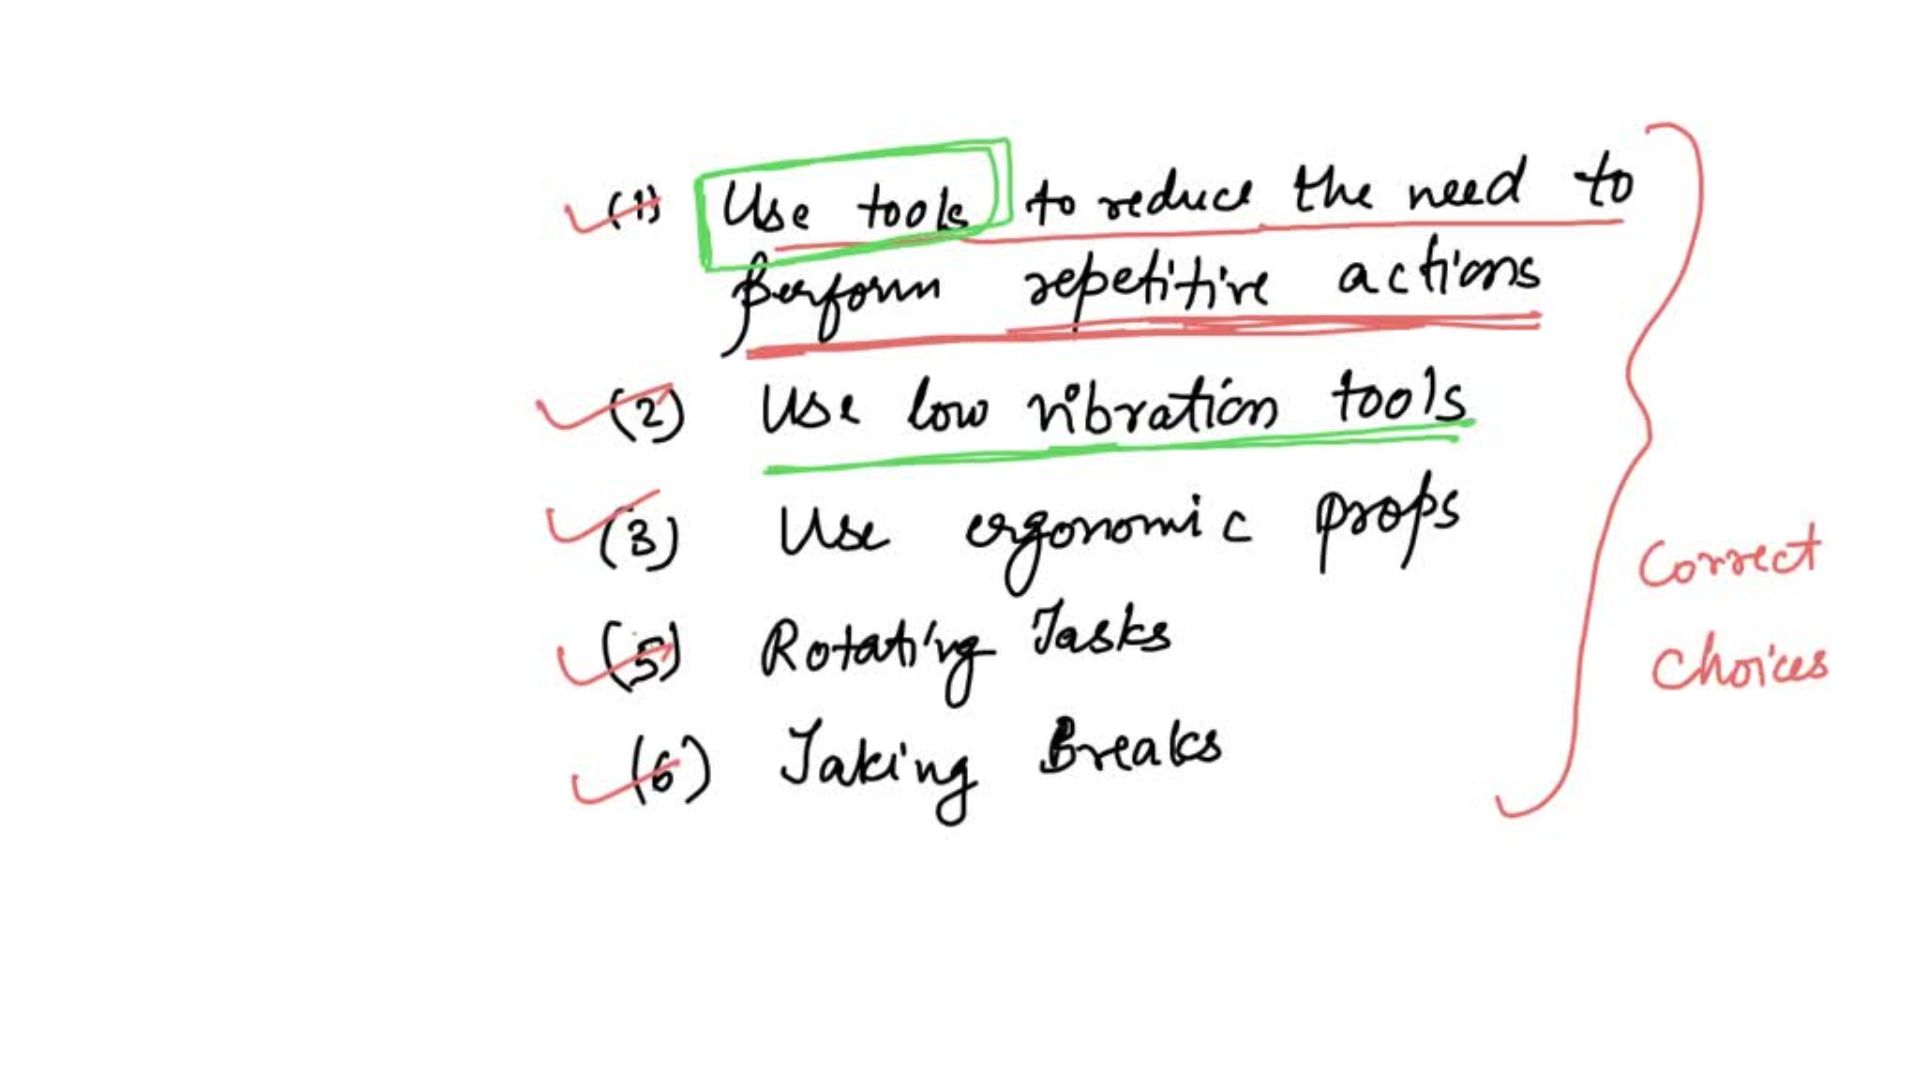 (1) Use tools to reduce the need to
perform repetitive actions
(2) Use low vibration tools
(3) Use ergonomic props
(5) Rotating Tasks
(6) Taking Breaks
Correct
Choices